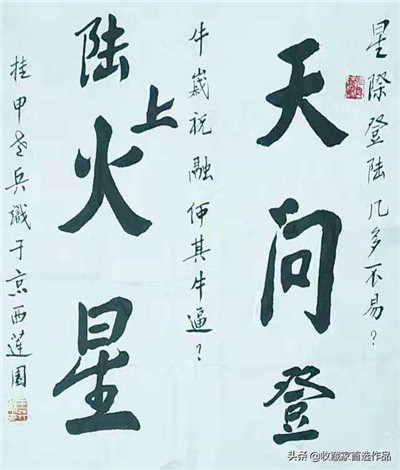 星際登陆几多不易?
天问登
牛嵗祝融何其牛逼?
陆上火星
桂甲老兵識于京西莲園
头条 @收藏家首选作品